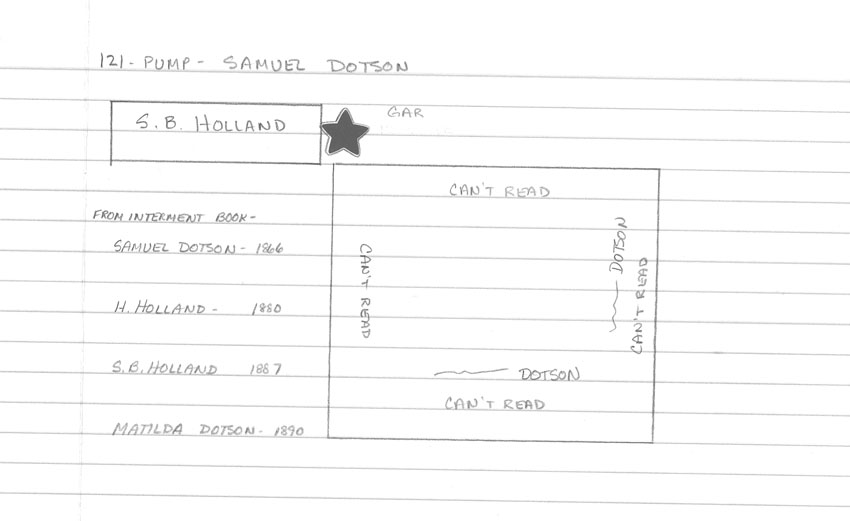 121 - PUMP - SAMUEL DOTSON
S. B. HOLLAND
GAR
CAN'T READ
FROM INTERMENT BOOK -
SAMUEL DOTSON - 1866
CAN'T READ
DOTSON
CAN'T READ
H. HOLLAND - 1880
S. B. HOLLAND 1887
DOTSON
CAN'T READ
MATILDA DOTSON - 1890